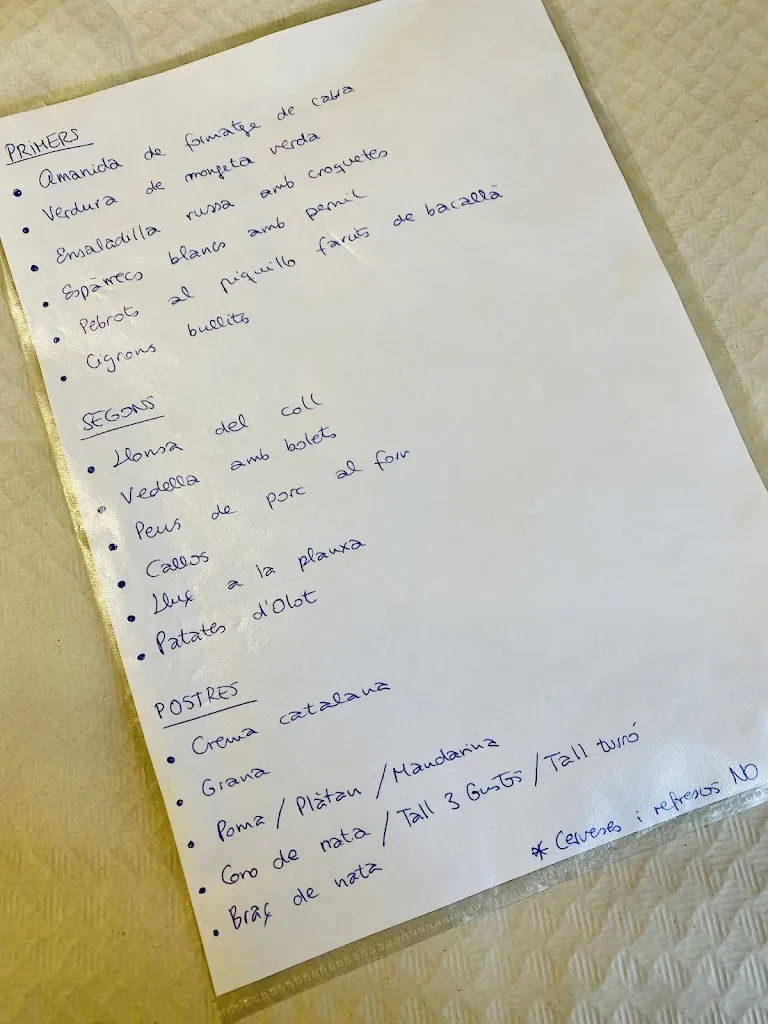 PRIMERS
• Amanida de formatge de cabra
• Verdura de mongeta verda
• Ensaladilla russa amb croquetes
• Espàrrecs blancs amb pernil
• Pebrots al piquillo farcits de bacallà
• Cigrons bullits
SEGONS
• Llonsa del coll
• Vedella amb bolets
• Peus de porc al forn
• Callos
• Lluç a la planxa
• Patates d'Olot
POSTRES
• Crema catalana
• Grana
• Poma / Plàtan / Mandarina
• Coro de nata / Tall 3 Gustos / Tall turró
• Braç de nata
* Cerveses i refrescos NO